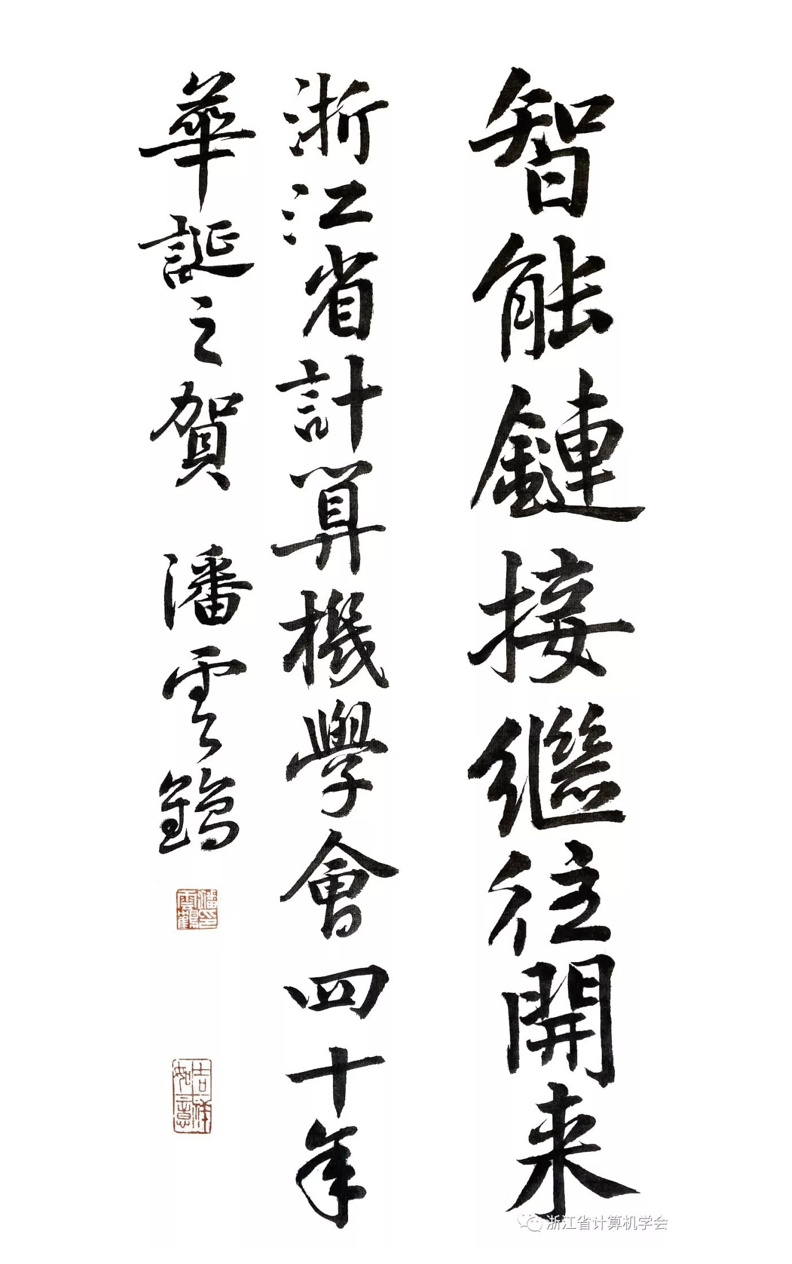 智能鏈接繼往開来
浙江省計算機學會四十年
華誕之賀 潘雲鶴
潘雲鶴印
吉祥如意
浙江省计算机学会